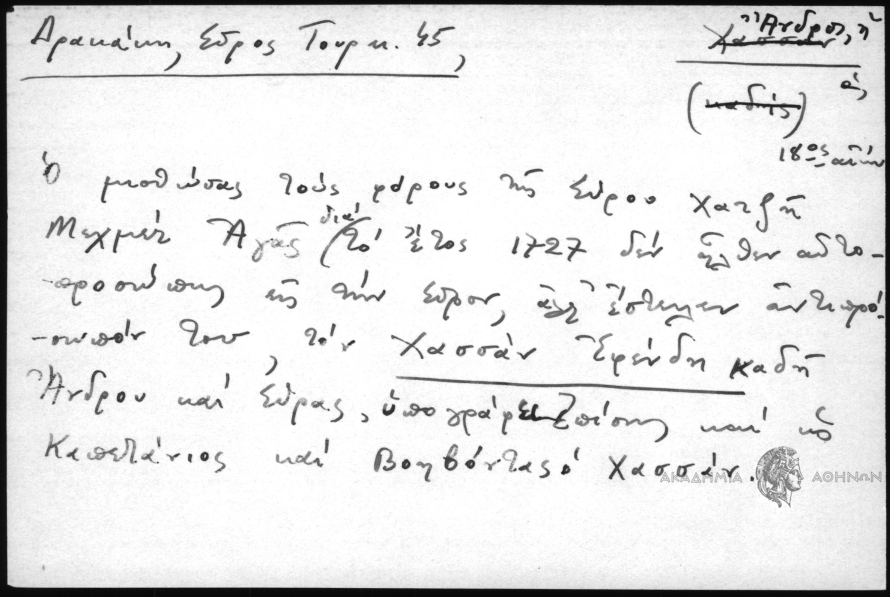 Δρακάκη, Σύρος Τουρκ. 45,
Ἄνδρος, ἡ
Χασσάν
(καδής)
18ος αἰών
Ὁ μισθώσας τούς φόρους τῆς Σύρου Χατζῆ
Μεχμέτ Ἀγᾶς διά τό ἔτος 1727 δέν ἦλθεν αὐτο-
-προσώπως εἰς τήν Σῦρον, ἀλλ' ἔστειλεν ἀντιπρό-
-σωπόν του, τόν Χασσάν Ἐφένδη καδῆ
Ἄνδρου καί Σύρας, ὑπογράφει ἐπίσης καί ὡς
Καπετάνιος καί Βοηβόντας ὁ Χασσάν.
ΑΚΑΔΗΜΙΑ ΑΘΗΝΩΝ